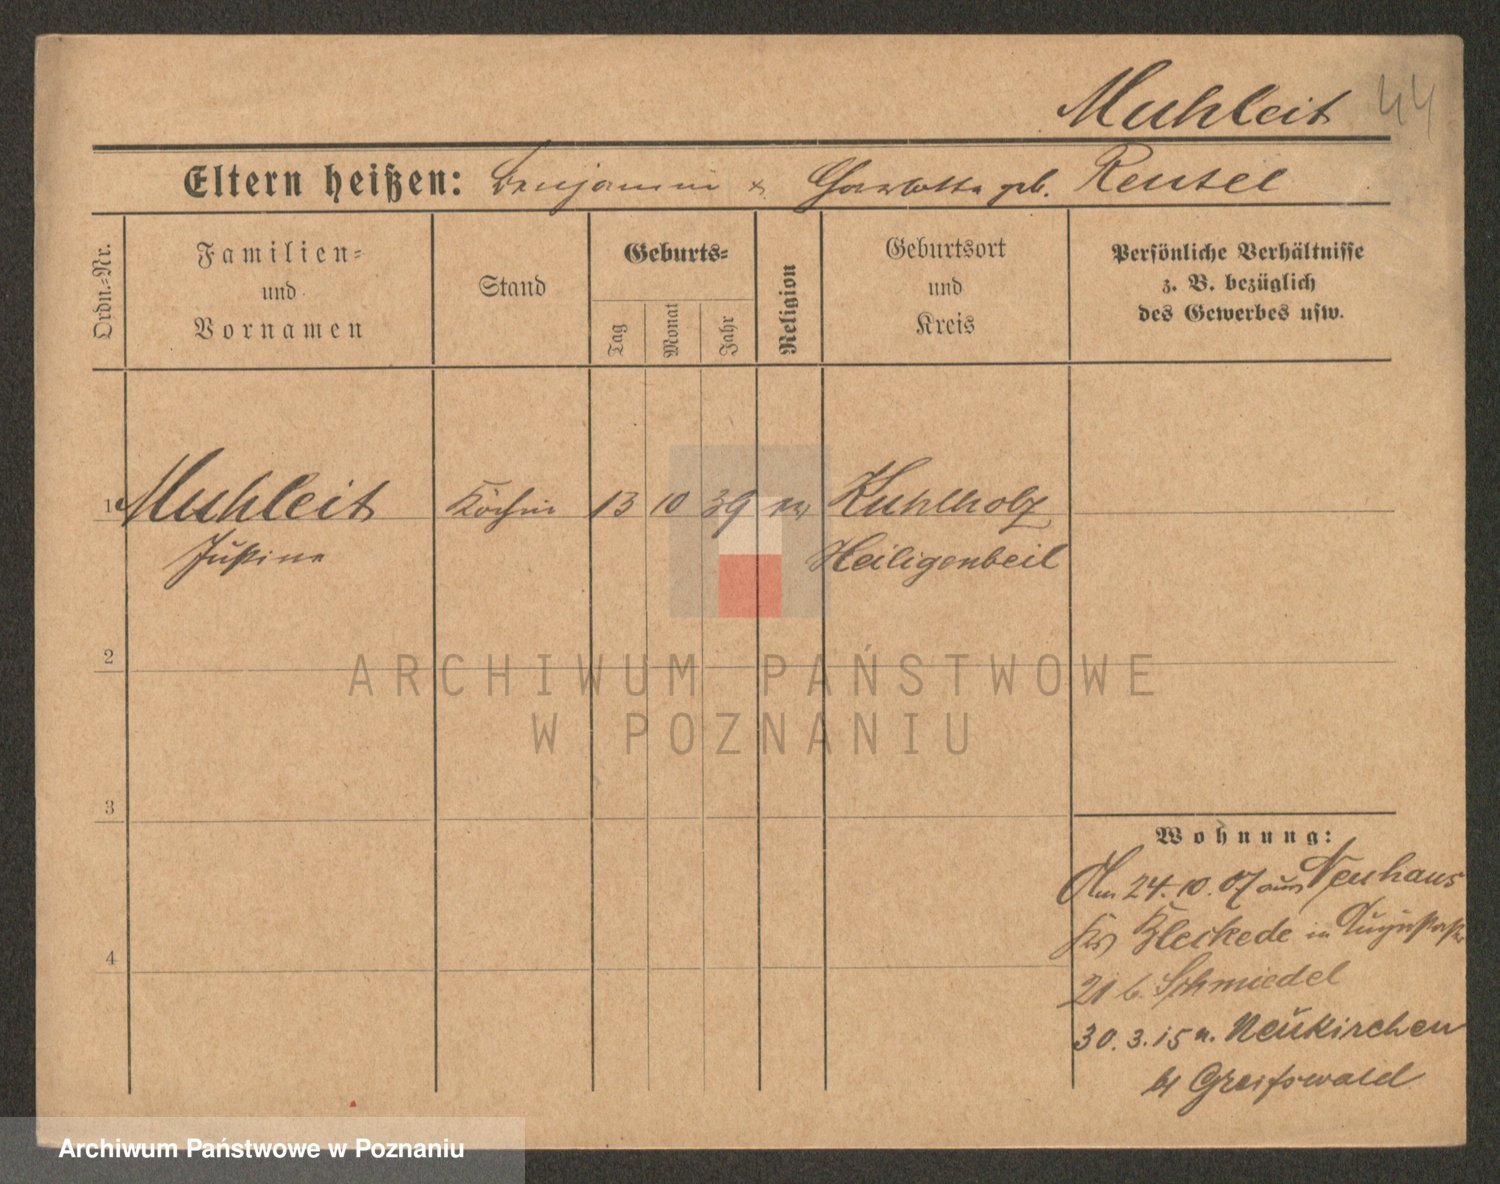 Muhleit 44
Eltern heißen: Benjamin & Charlotte geb. Reusel
Ordn.-Nr.
Familien-
und
Vornamen
Stand
Geburts-
Tag
Monat
Jahr
Religion
Geburtsort
und
Kreis
Persönliche Verhältnisse
z. B. bezüglich
des Gewerbes usw.
1 Muhleit Köchin 13 10 39 ev Kuhlholz
Justine Heiligenbeil
2
3
4
Wohnung:
Am 24.10.07 aus Neuhaus
Krs Bleckede in
21 b. Schmiedel
30.3.15 n. Neukirchen
b/ Greifswald
ARCHIWUM PAŃSTWOWE
W POZNANIU
Archiwum Państwowe w Poznaniu